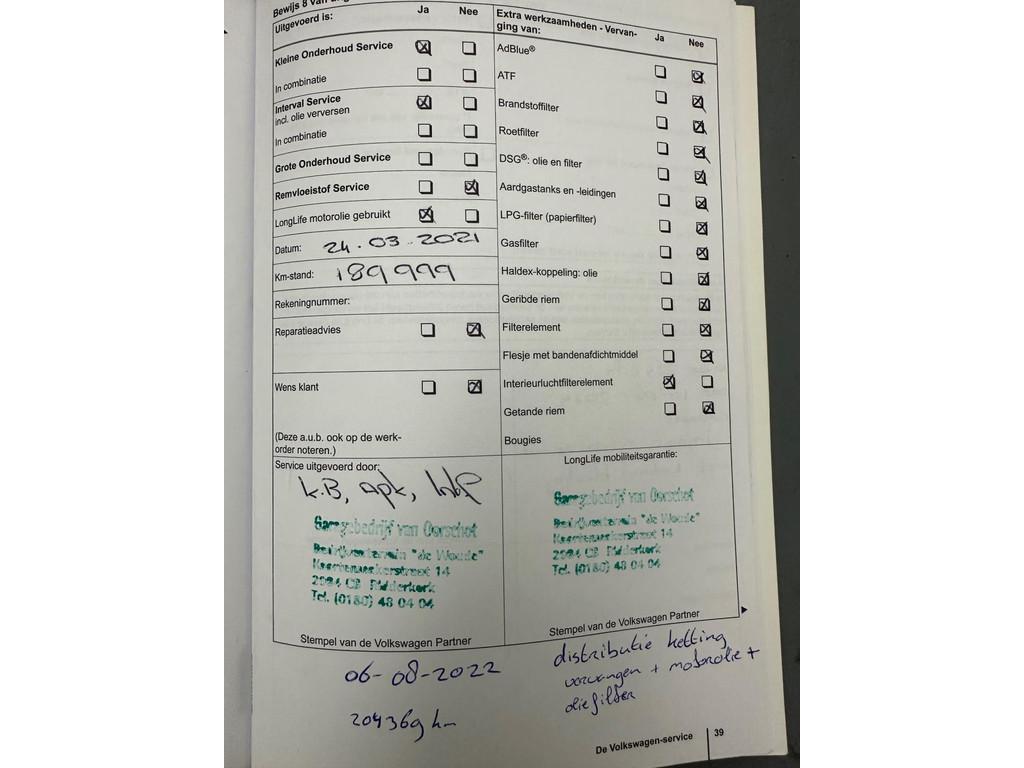 Bewijs 8 van
Uitgevoerd is: Ja Nee
Kleine Onderhoud Service
In combinatie
Interval Service
incl. olie verversen
In combinatie
Grote Onderhoud Service
Remvloeistof Service
LongLife motorolie gebruikt
Datum: 24.03.2021
Km-stand: 189999
Rekeningnummer:
Reparatieadvies
Wens klant
(Deze a.u.b. ook op de werk-
order noteren.)
Extra werkzaamheden - Vervan-
ging van: Ja Nee
AdBlue®
ATF
Brandstoffilter
Roetfilter
DSG®: olie en filter
Aardgastanks en -leidingen
LPG-filter (papierfilter)
Gasfilter
Haldex-koppeling: olie
Geribde riem
Filterelement
Flesje met bandenafdichtmiddel
Interieurluchtfilterelement
Getande riem
Bougies
Service uitgevoerd door:
K.B, apk,
Garagebedrijf van Oorschot
Bedrijventerrein "de Woude"
14
2984 CB Ridderkerk
Tel. (0180) 48 04 04
Stempel van de Volkswagen Partner
LongLife mobiliteitsgarantie:
Garagebedrijf van Oorschot
Bedrijventerrein "de Woude"
14
2984 CB Ridderkerk
Tel. (0180) 48 04 04
Stempel van de Volkswagen Partner
06-08-2022
204369 km
distributie ketting
vervangen + motorolie +
oliefilter
De Volkswagen-service 39